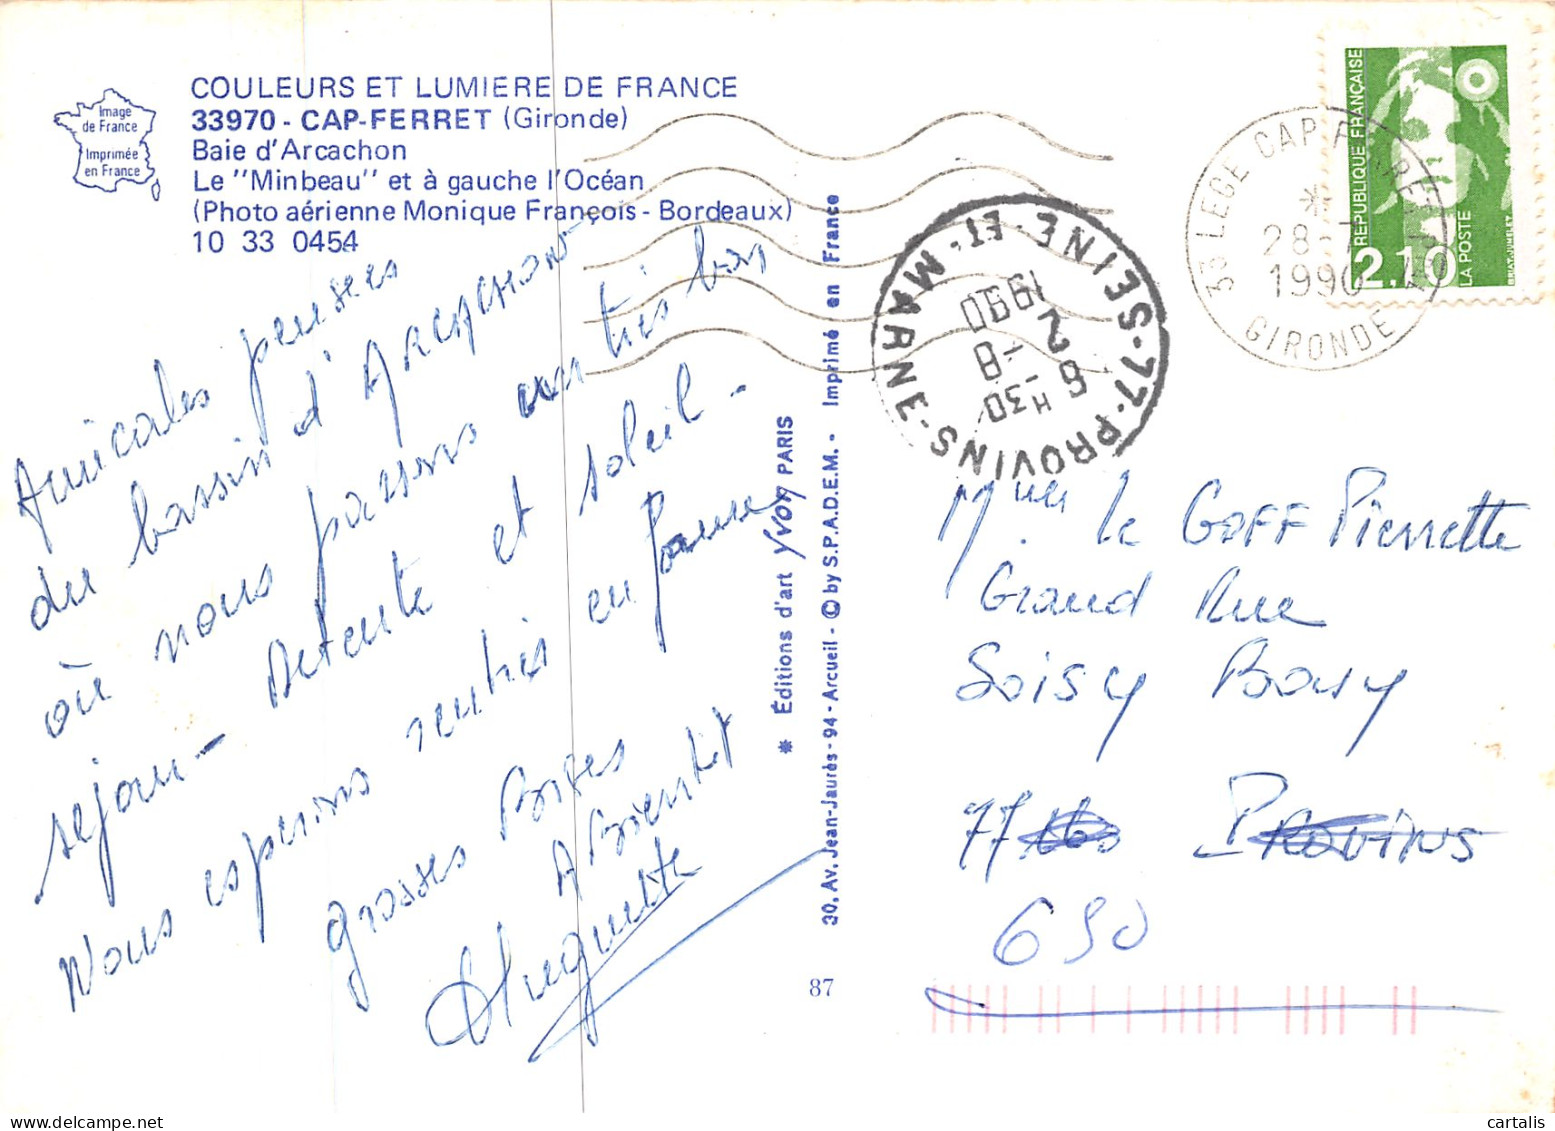 Image
de France
Imprimée
en France
COULEURS ET LUMIERE DE FRANCE
33970 - CAP-FERRET (Gironde)
Baie d'Arcachon
Le "Minbeau" et à gauche l'Océan
(Photo aérienne Monique François - Bordeaux)
10 33 0454
Amicales pensées
du bassin d'Arcachon
où nous passons un très bon
sejour - Detente et soleil -
Nous esperons rentrés en forme
grosses Bises
A Bientôt
Huguette
* Éditions d'art Yvon PARIS
30, Av. Jean-Jaurès - 94 - Arcueil - © by S.P.A.D.E.M. - Imprimé en France
87
77 - PROVINS - SEINE - ET - MARNE
8 H 30
2 - 8
1990
33 LEGE CAP FERRET
*
28 - 7
1990
GIRONDE
RÉPUBLIQUE FRANÇAISE
2,10
LA POSTE
BRIAT-JUMELET
le GOFF Pierrette
Grand Rue
Soisy Bouy
77 PROVINS
650
cartalis